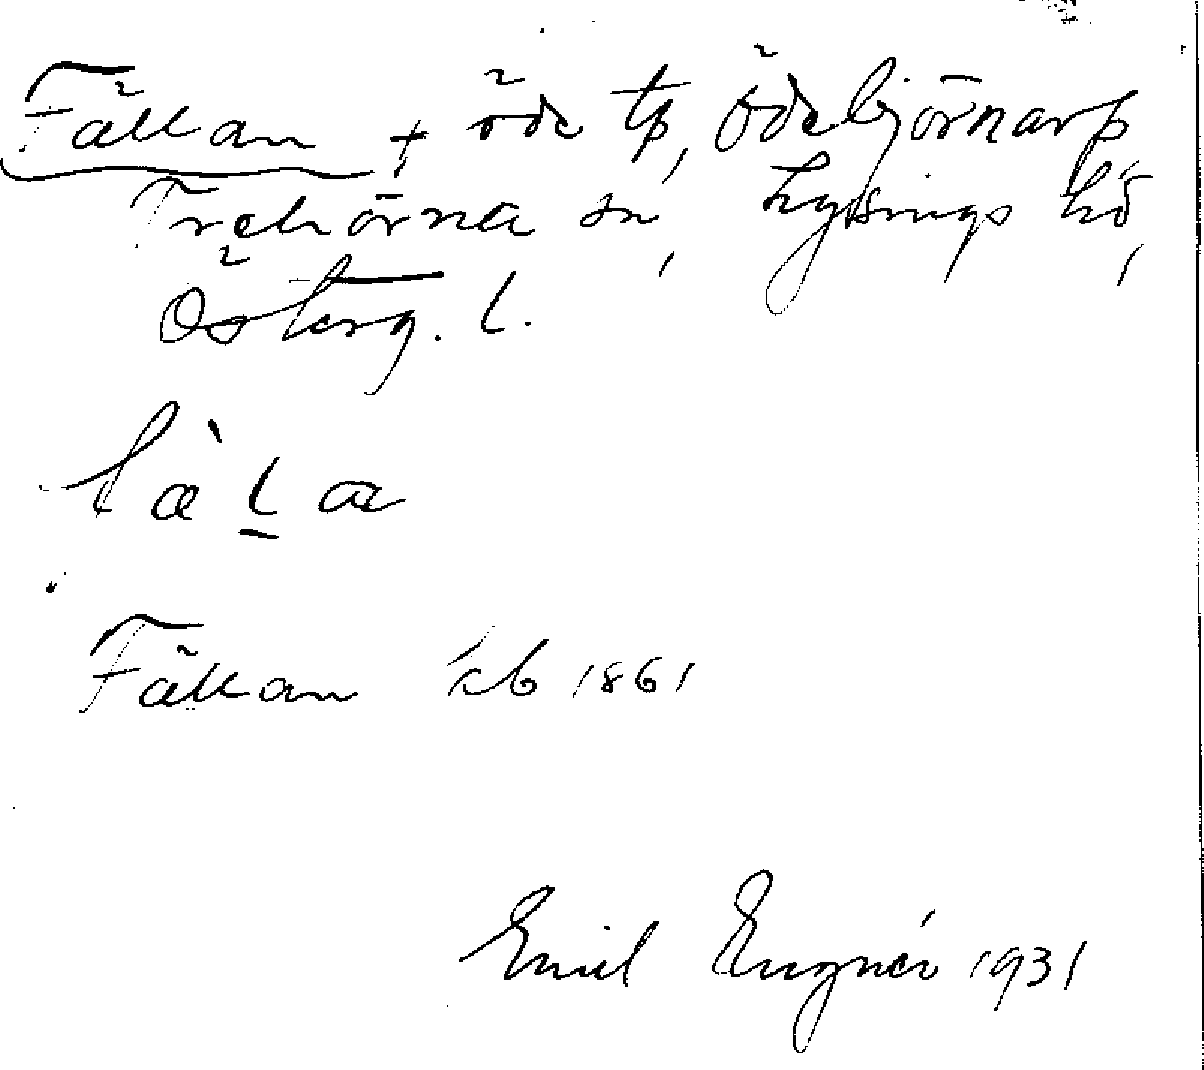 Fällan + öde tp, Ödebjörnarp,
Trehörna sn, Lysings hd,
Österg. l.
Fällan kb 1861
Emil Engnér 1931